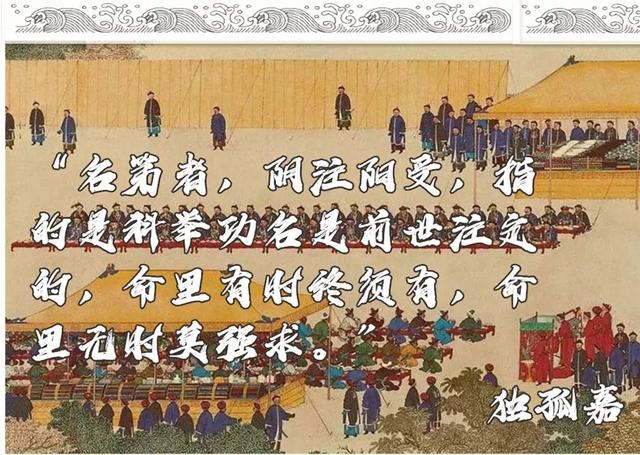 “名第者，阴注阳受，指
的是科举功名是前世注定
的，命里有时终须有，命
里无时莫强求。”
独孤嘉